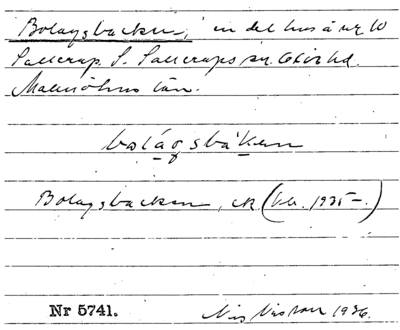 Bolagsbacken, en del hus å nr 10
Sallerup. S. Sallerups sn. Oxie hd.
Malmöhus län.
bolágsbàkan
Bolagsbacken, ek (Kbr. 1935–.)
Nr 5741. Nils Nilsson 1936.